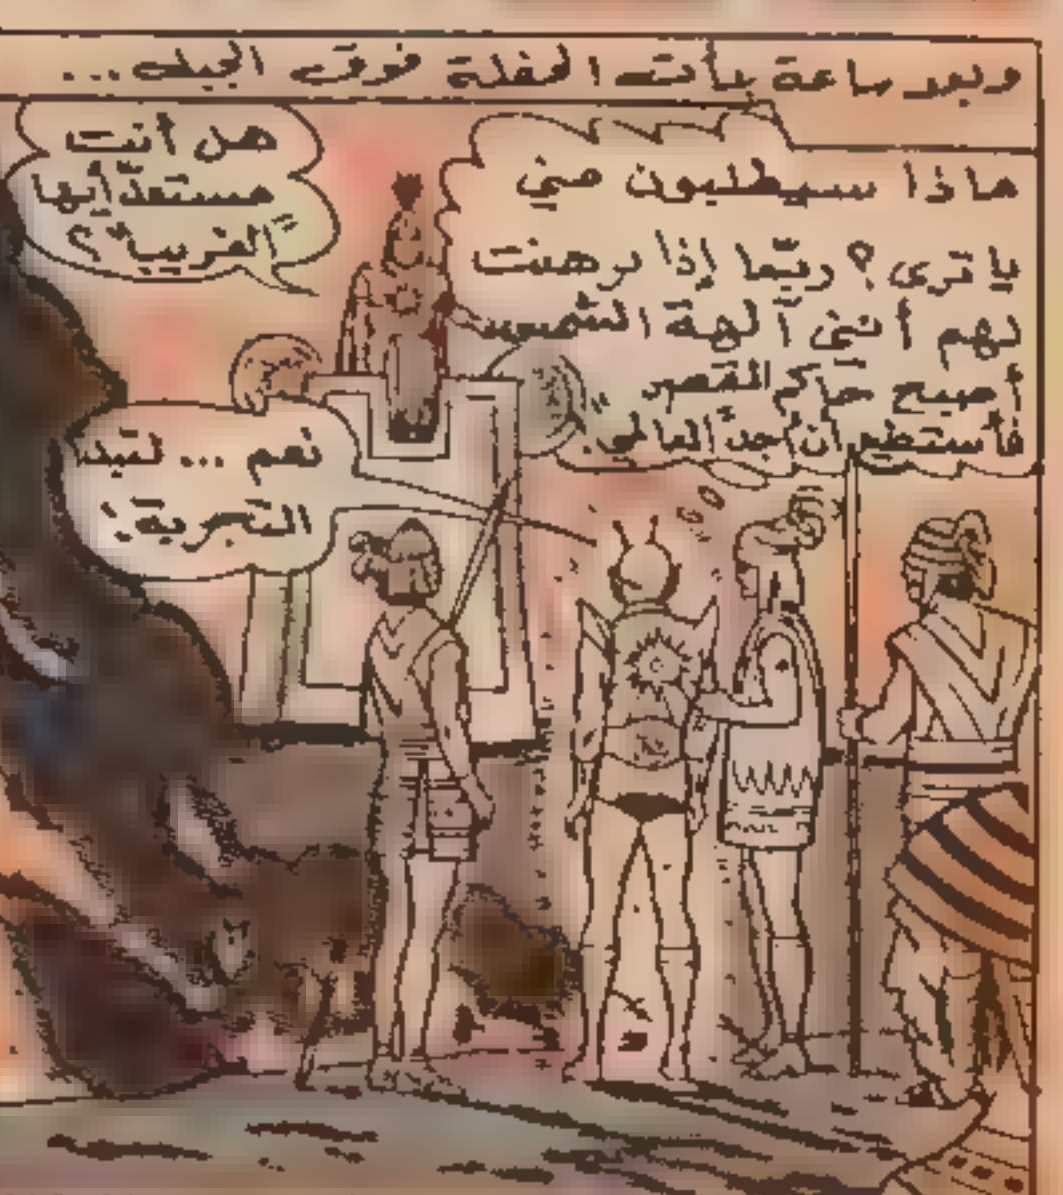 وبعد ساعة بدأت الحفلة فوق الجبل...
ماذا سيطلبون مني
يا ترى؟ ربّما إذا برهنت
لهم أنني آلهة الشمس
أصبح حاكم القصر
فأستطيع أن أجد العالم.
هل أنت
مستعدّ أيها
"الغريب"؟
نعم ... لنبدأ
التجربة.